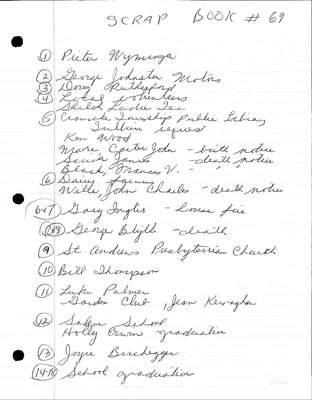 SCRAP BOOK # 69
1 Pieter Wyminga
2 George Johnston Motors
3 Doug Rutherford
4 Local volunteers
Shiloh Ladies Tea
5 Township Public Library
request
Ken Wood
More, Carter John - birth notice
Senior James - death notice
Black, Frances V. - " "
6 Dairy
Wille, John Charles - death notice
6+7 Gary Ingles - house fire
7+8 George Blyth - death
9 St. Andrews Presbyterian Church
10 Bill Thompson
11 Luke Palmer
Garden Club, Jean Kernaghan
12 Salem School
Holly Cowan graduation
13 Joyce Berchegger
14+15 School graduation